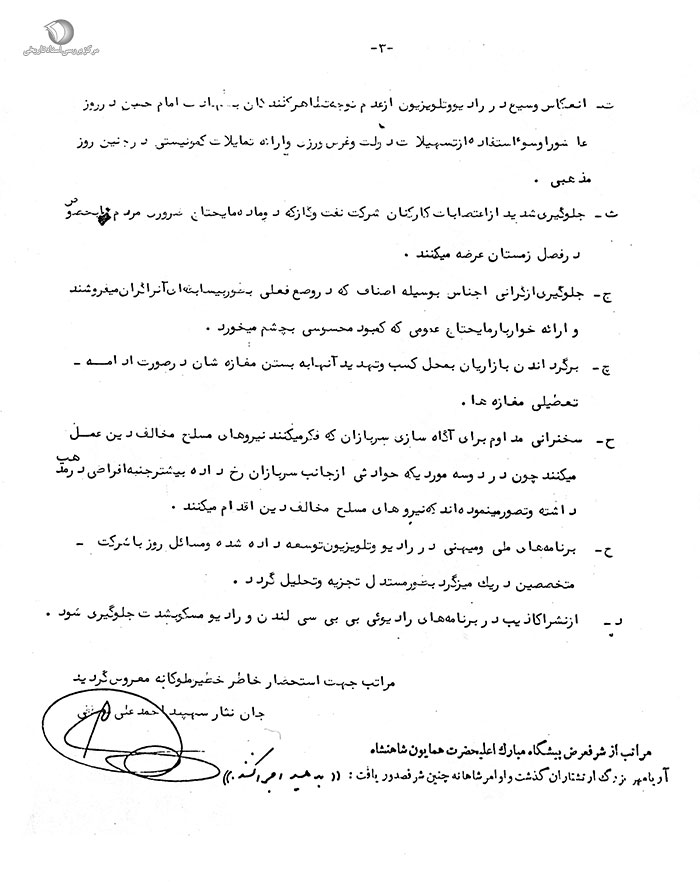 مرکز بررسی اسناد تاریخی
-۳-
ت- انعکاس وسیع در رادیو و تلویزیون از عدم توجه تظاهرکنندگان بشهادت امام حسین در روز
عاشورا و سوء استفاده از تسهیلات دولت و غرض ورزی و ارائه تمایلات کمونیستی در چنین روز
مذهبی .
ث- جلوگیری شدید از اعتصابات کارکنان شرکت نفت و گاز که دو ماده مایحتاج ضروری مردم بخصوص
در فصل زمستان عرضه میکنند .
ج- جلوگیری از گرانی اجناس بوسیله اصناف که در وضع فعلی بطور بیسابقه‌ای آنرا گران میفروشند
و ارائه خواربار مایحتاج عمومی که کمبود محسوسی بچشم میخورد .
چ- برگرداندن بازاریان بمحل کسب و تهدید آنها به بستن مغازه شان در صورت ادامه -
تعطیلی مغازه ها .
ح- سخنرانی مداوم برای آگاه سازی سربازان که فکر میکنند نیروهای مسلح مخالف دین عمل
میکنند چون در دو سه موردیکه حوادثی از جانب سربازان رخ داده بیشتر جنبه افراطی در مذهب
داشته و تصور مینموده‌اند که نیروهای مسلح مخالف دین اقدام میکنند .
خ- برنامه‌های ملی و میهنی در رادیو و تلویزیون توسعه داده شده و مسائل روز با شرکت -
متخصصین در یک میزگرد بطور مستدل تجزیه و تحلیل گردد .
د- از نشر اکاذیب در برنامه‌های رادیوئی بی بی سی لندن و رادیو مسکو بشدت جلوگیری شود .
مراتب جهت استحضار خاطر خطیر ملوکانه معروض گردید
جان نثار سپهبد احمد علی
مراتب از شرفعرض پیشگاه مبارک اعلیحضرت همایون شاهنشاه
آریامهر بزرگ ارتشتاران گذشت و اوامر شاهانه چنین شرفصدور یافت : (( بدهید اجرا کنند . ))